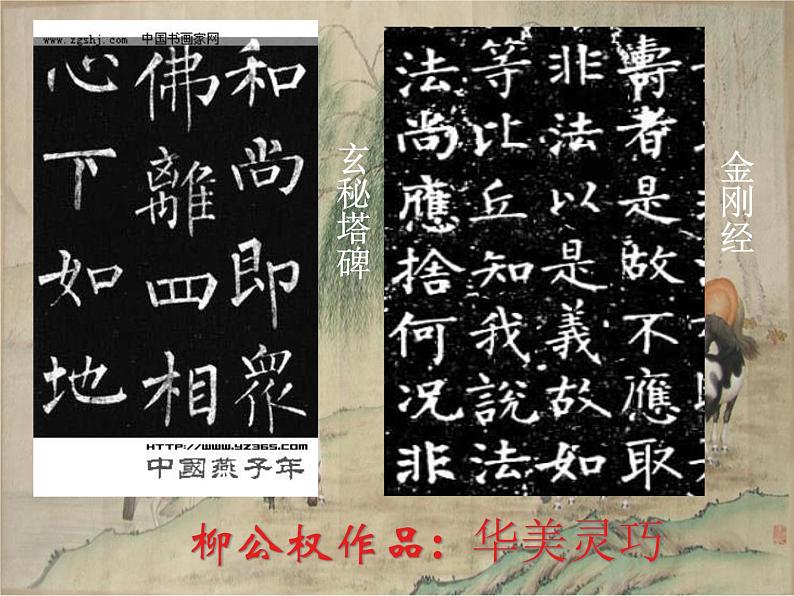 www.zgshj.com 中国书画家网
和尚即衆
佛離四相
心下如地
HTTP://WWW.YZ365.COM
中國燕子年
玄秘塔碑
壽者是故不應取
非法以是義故如
等比丘知我說法
法尚應捨何況非
金刚经
柳公权作品：华美灵巧